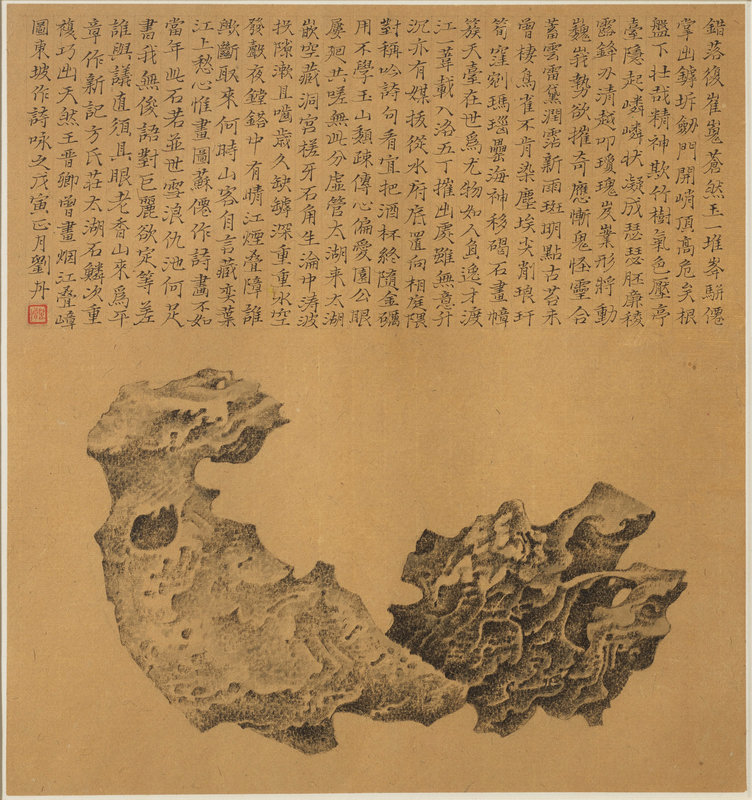 錯落復崔嵬蒼然玉一堆峯駢僊
掌出罅坼劒門開峭頂高危矣根
盤下壯哉精神欺竹樹氣色壓亭
臺隱起嶙嶙狀凝成瑟瑟胚廉稜
露鋒刃清越叩瓊瑰岌嶪形將動
巍峩勢欲摧奇應慚鬼怪靈合
蓄雲雷黛潤霑新雨斑明點古苔未
曾棲鳥雀不肯染塵埃尖削琅玕
筍窪剜瑪瑙罍海神移碣石畫幛
簇天臺在世爲尤物如人負逸才渡
江一葦載入洛五丁摧出處雖無意升
沉亦有媒拔從水府底置向相庭隈
對稱吟詩句看宜把酒杯終隨金礪
用不學玉山頹疎傅心偏愛園公眼
屢迴共嗟無此分虛管太湖來太湖
嵌空藏洞宮槎牙石角生淪中涛波
投隙漱且嚙歲久缺罅深重重水空
發嚴夜鏜鎝中有晴江煙叠障誰
歟斷取來何時山客自言藏奕葉
江上愁心惟畫圖蘇僊作詩畫不如
當年此石若並世雪浪仇池何足
書我無俊語對巨麗欲定等差
誰與議直須具眼老香山來爲平
章作新記方氏莊太湖石鱗次重
複巧出天然王晋卿嘗畫烟江叠嶂
圖東坡作詩咏之戊寅正月劉丹